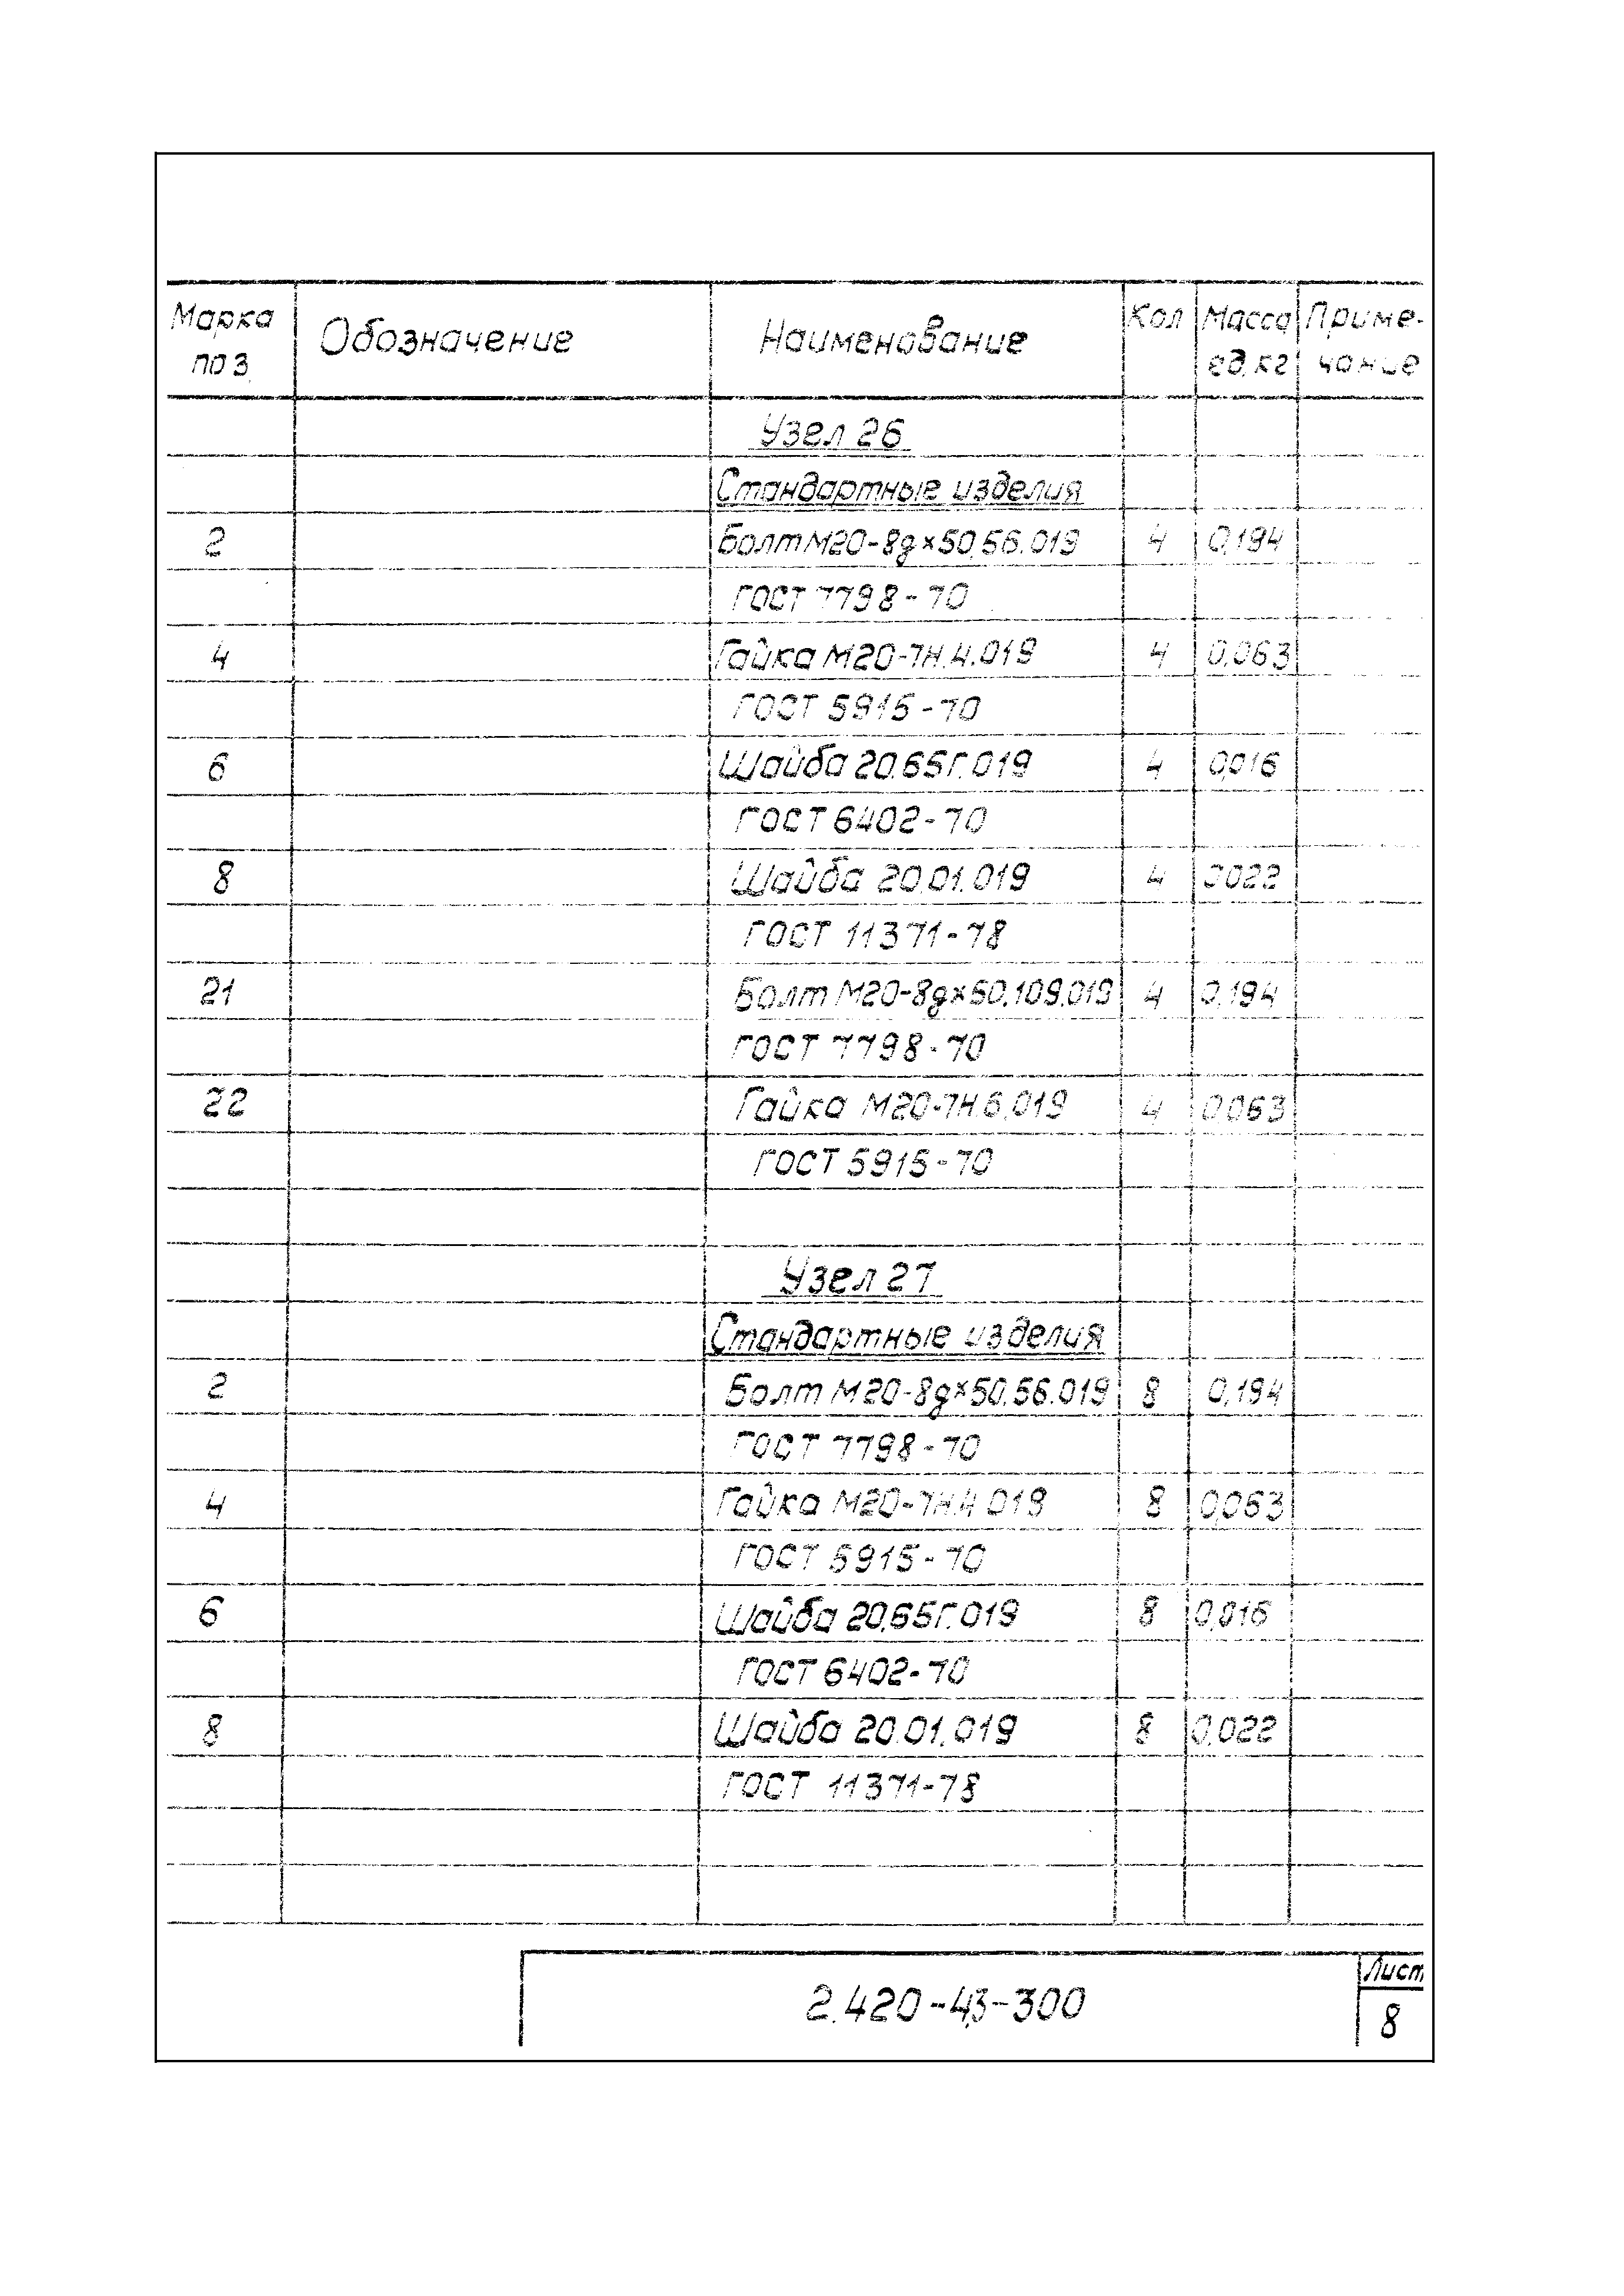 Марка поз. Обозначение Наименование Кол Масса ед.кг Приме-чание
Узел 26
Стандартные изделия
2 Болт М20-8g×50.56.019 4 0,194
ГОСТ 7798-70
4 Гайка М20-7Н.4.019 4 0,063
ГОСТ 5915-70
6 Шайба 20.65Г.019 4 0,016
ГОСТ 6402-70
8 Шайба 20.01.019 4 0022
ГОСТ 11371-78
21 Болт М20-8g×50.109.019 4 0,194
ГОСТ 7798-70
22 Гайка М20-7Н.6.019 4 0,063
ГОСТ 5915-70
Узел 27
Стандартные изделия
2 Болт М20-8g×50.56.019 8 0,194
ГОСТ 7798-70
4 Гайка М20-7Н.4.019 8 0,063
ГОСТ 5915-70
6 Шайба 20.65Г.019 8 0,016
ГОСТ 6402-70
8 Шайба 20.01.019 8 0,022
ГОСТ 11371-78
Лист
2.420-4.3-300
8